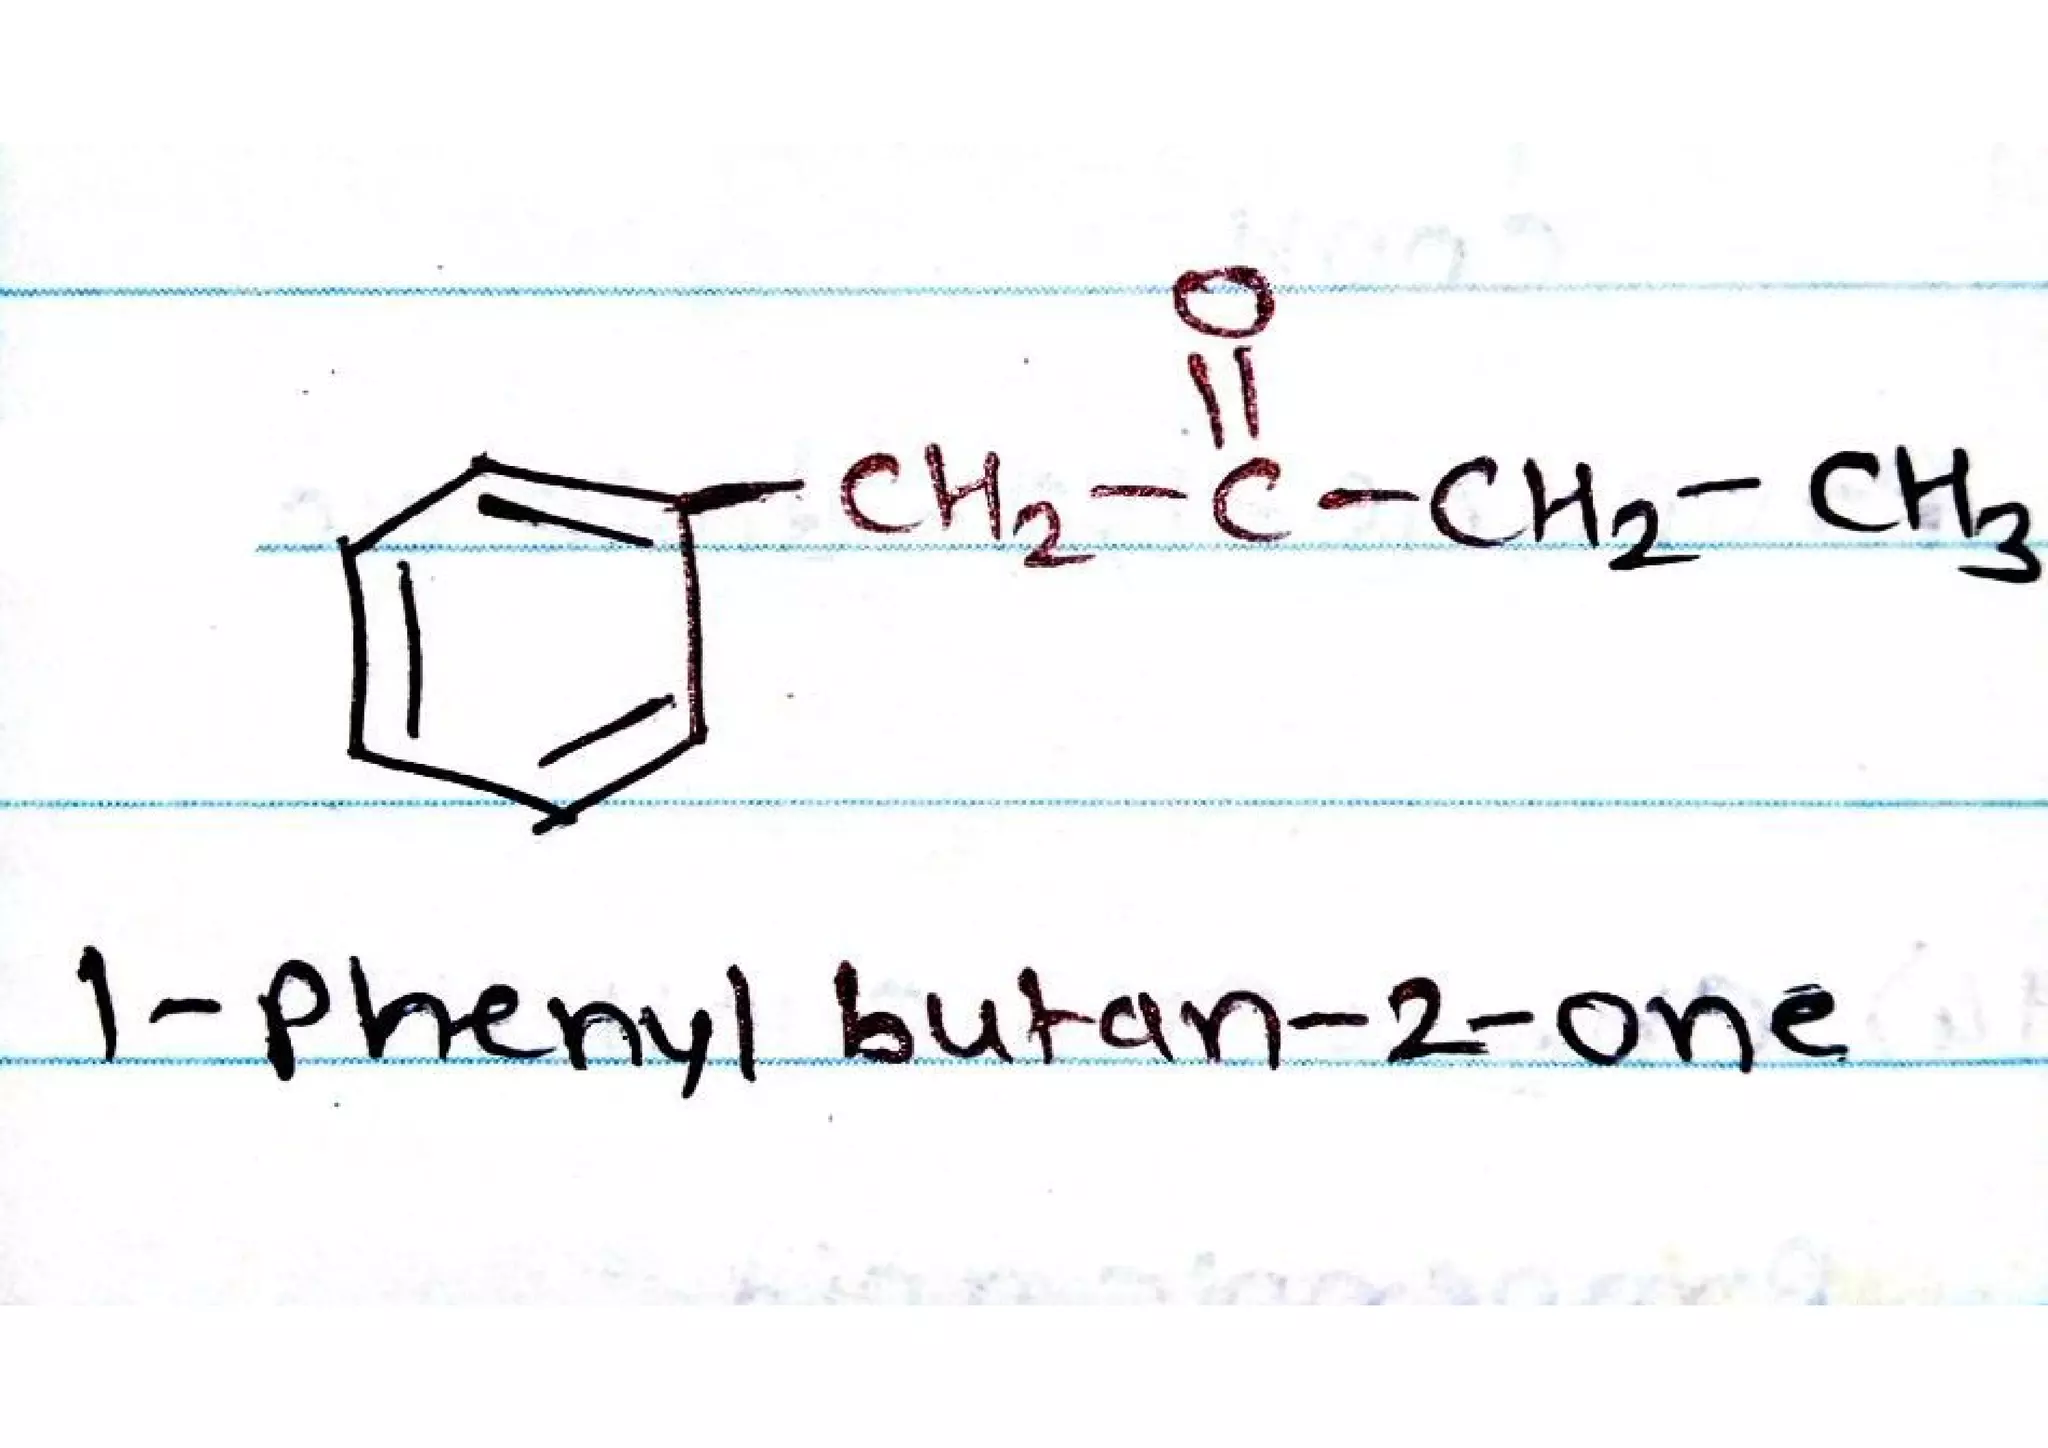 O
CH₂-C-CH₂-CH₃
1-Phenyl butan-2-one